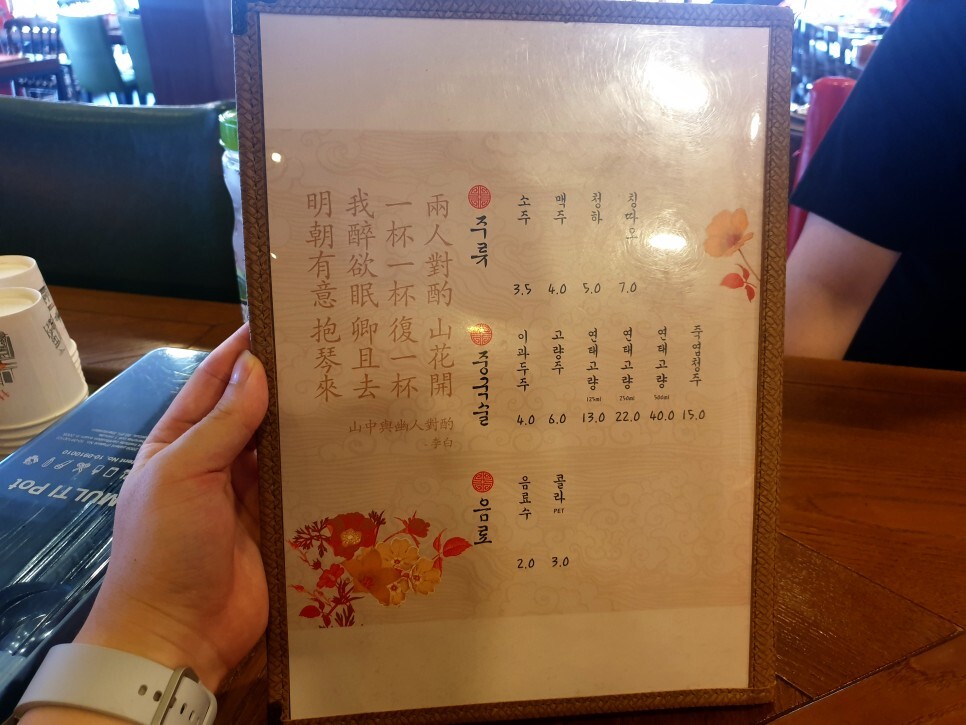 兩人對酌山花開
一杯一杯復一杯
我醉欲眠卿且去
明朝有意抱琴來
山中與幽人對酌
-李白
주류
소주
3.5
맥주
4.0
청하
5.0
칭따오
7.0
중국술
이과두주
4.0
고량주
6.0
연태고량
125ml
13.0
연태고량
250ml
22.0
연태고량
500ml
40.0
죽엽청주
15.0
음료
음료수
2.0
콜라
PET
3.0
MULTI Pot